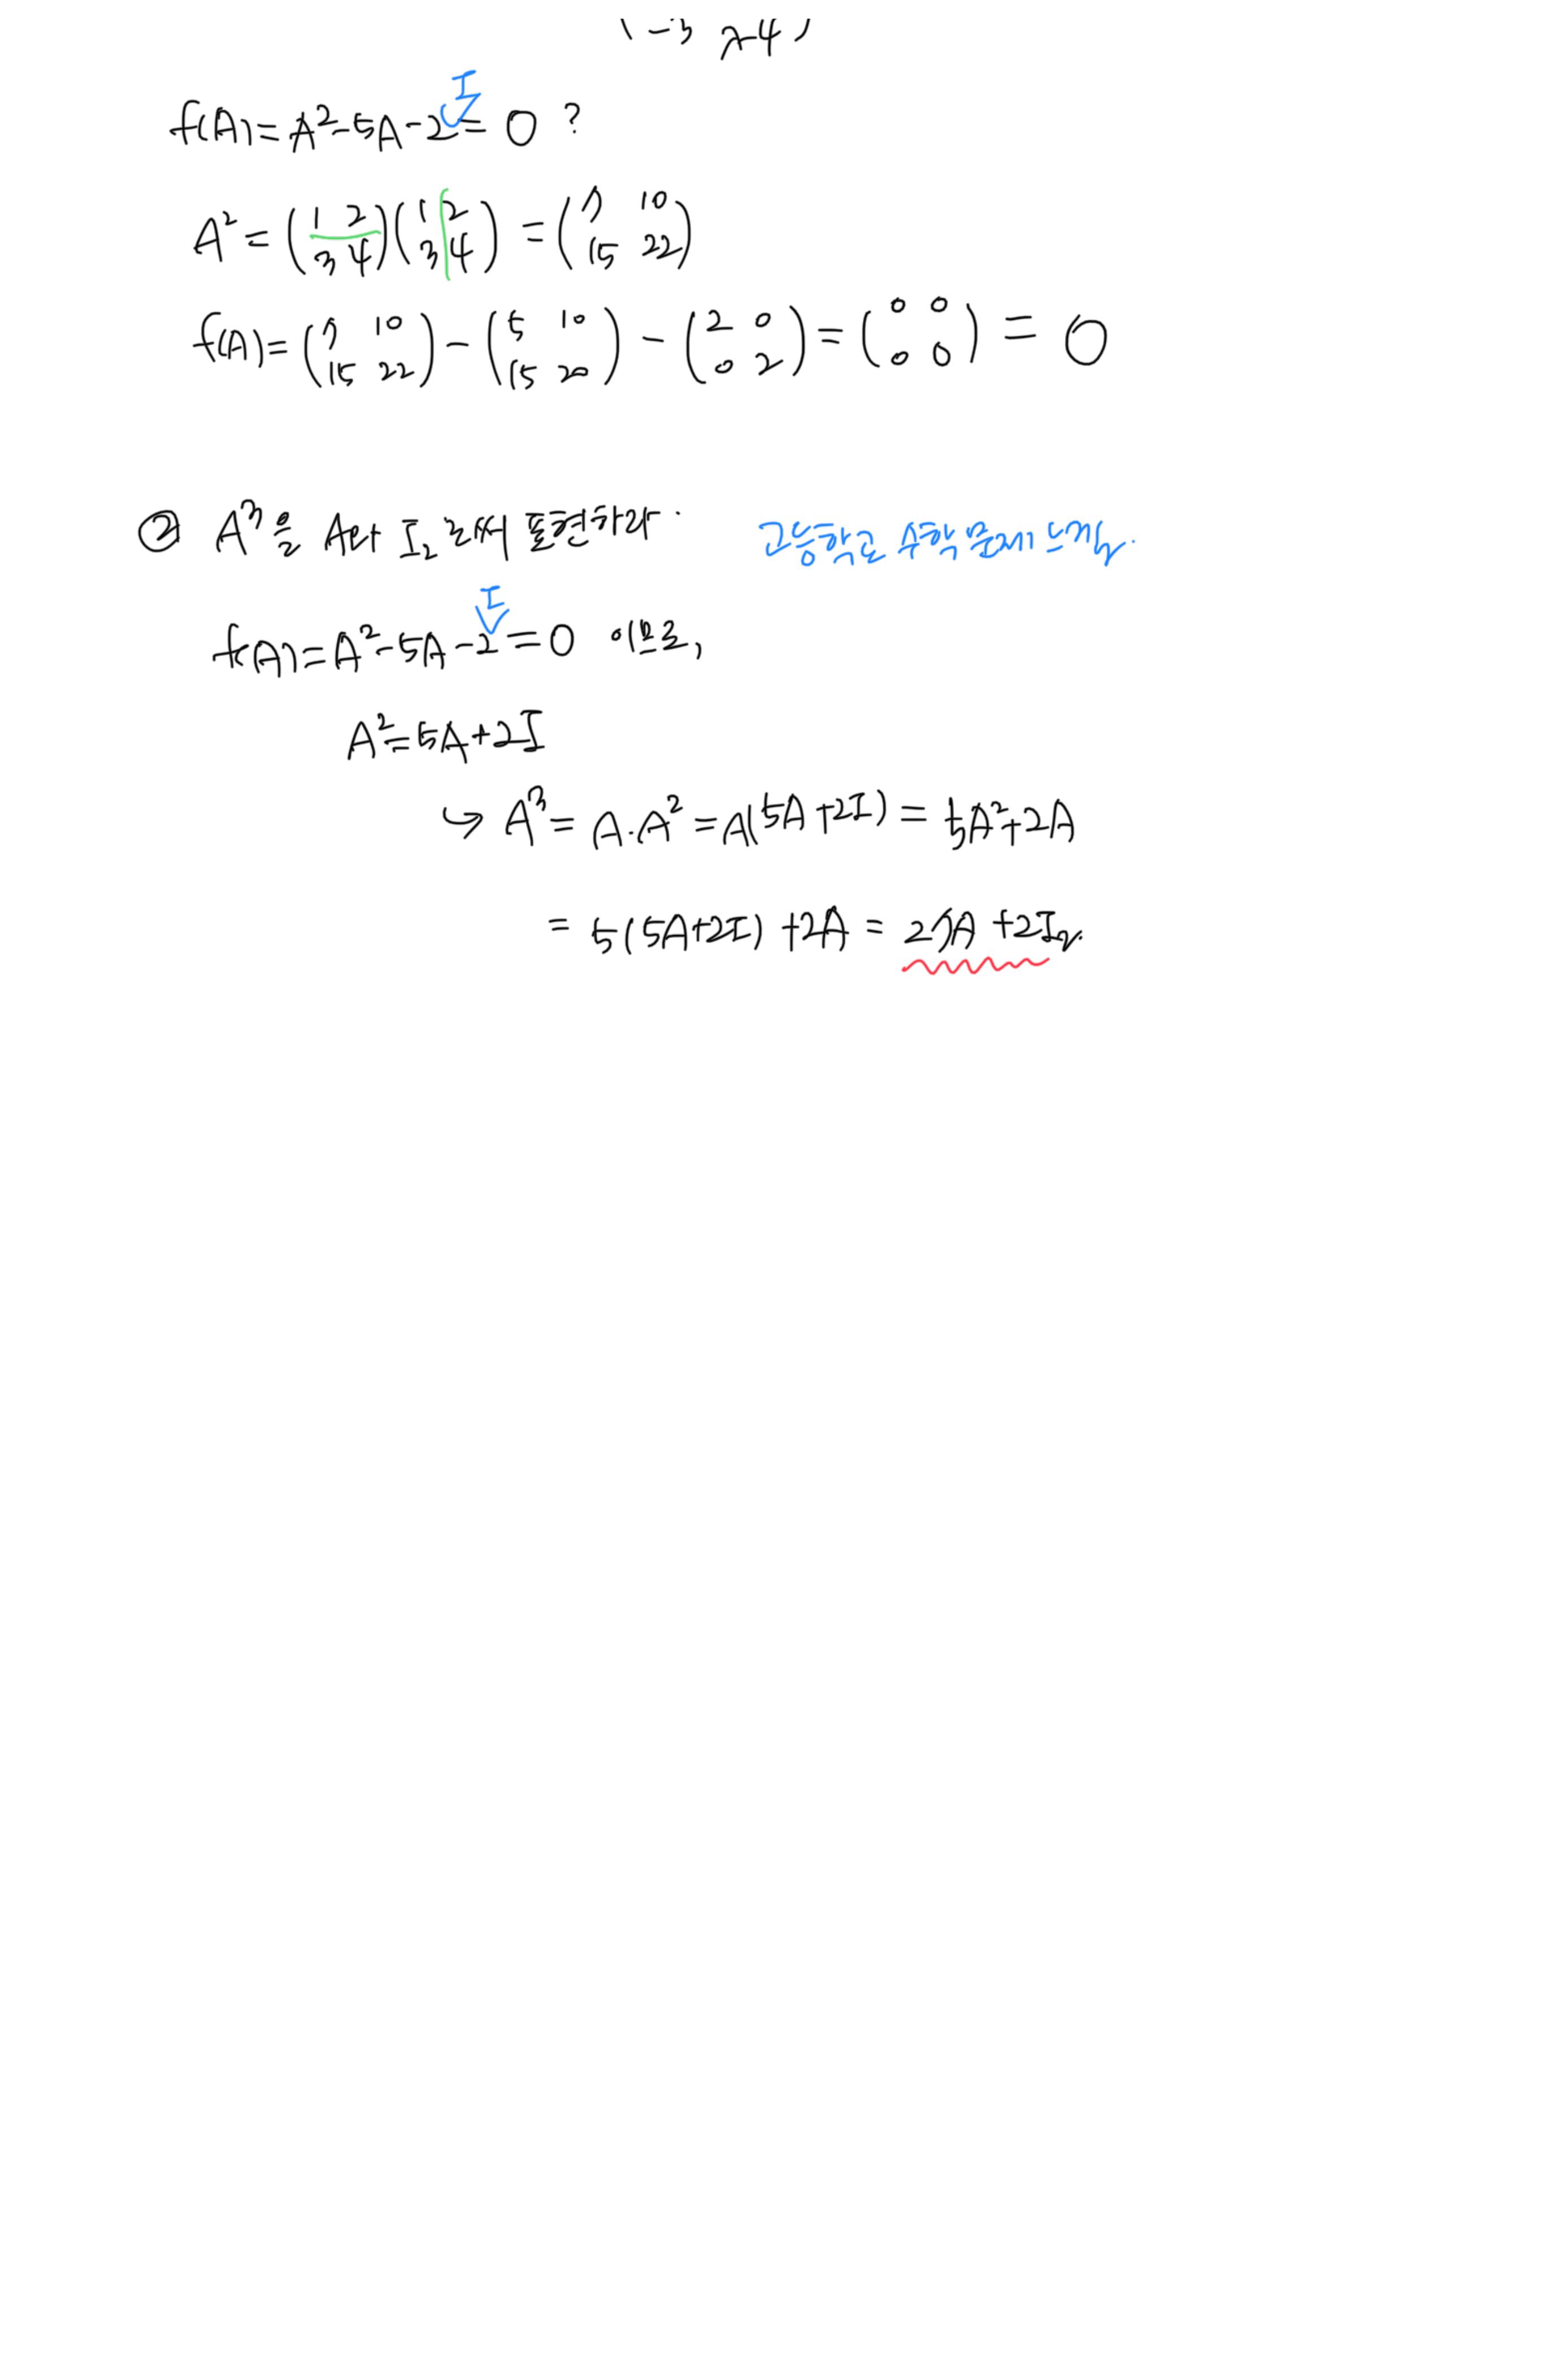 (-3 λ-4)
f(A)=A²-5A-2I=0 ?
A² = (1 2 3 4)(1 2 3 4) = (7 10 15 22)
f(A)= (7 10 15 22) - (5 10 15 20) - (2 0 0 2) = (0 0 0 0) = 0
② A³을 A와 I₂로써 표현하라. 고등학교 수학 문제 느낌.
f(A)=A²-5A-2I=0 이므로,
A²=5A+2I
↳ A³ = A·A² = A(5A+2I) = 5A²+2A
= 5(5A+2I) +2A = 27A +2I